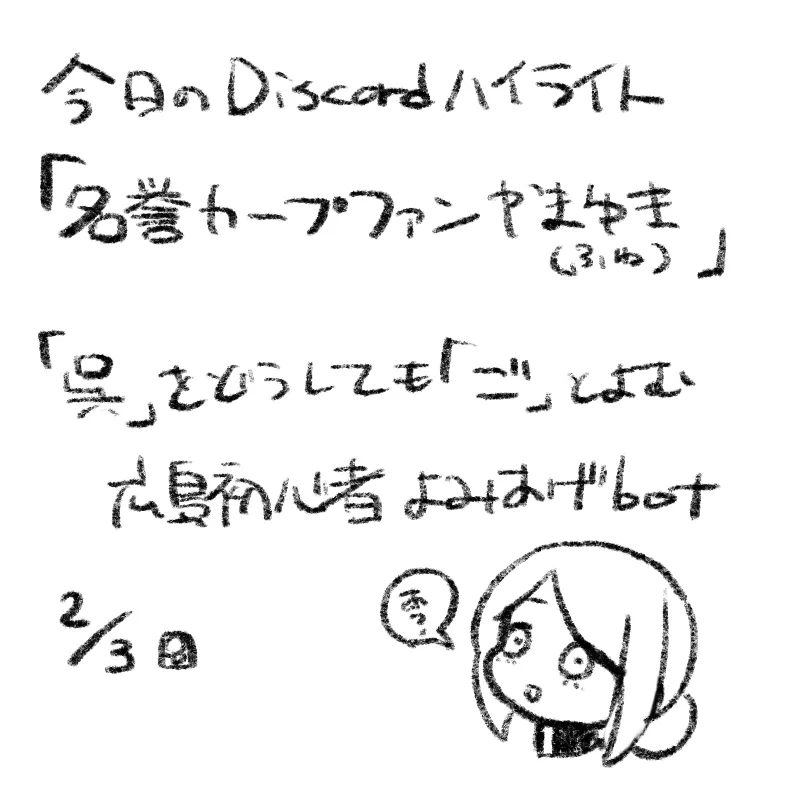 今日のDiscordハイライト
「名誉カープファンやまゆき
(ふゆ)」
「呉」をどうしても「ご」とよむ
広島初心者よみあげbot
2/3